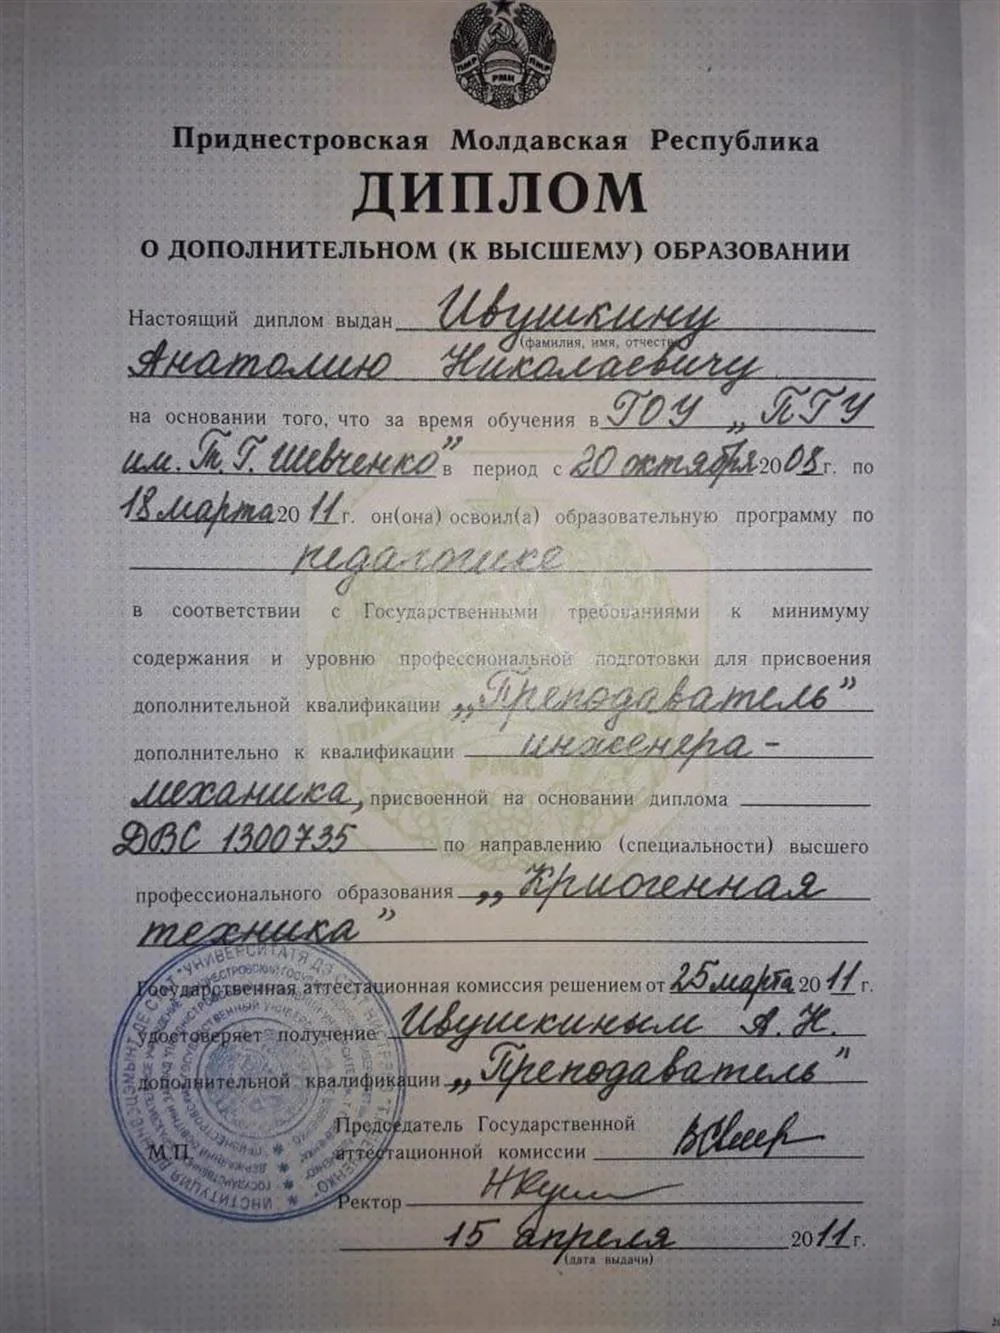 ПМР РМН ПМР
Приднестровская Молдавская Республика
ДИПЛОМ
О ДОПОЛНИТЕЛЬНОМ (К ВЫСШЕМУ) ОБРАЗОВАНИИ
Настоящий диплом выдан Ивушкину
(фамилия, имя, отчество)
Анатолию Николаевичу
на основании того, что за время обучения в ГОУ „ПГУ
им. Т. Г. Шевченко” в период с 20 октября 2008 г. по
18 марта 2011 г. он(она) освоил(а) образовательную программу по
педагогике
в соответствии с Государственными требованиями к минимуму
содержания и уровню профессиональной подготовки для присвоения
дополнительной квалификации „Преподаватель”
дополнительно к квалификации инженера-
механика, присвоенной на основании диплома
ДВС 1300735 по направлению (специальности) высшего
профессионального образования „Криогенная
техника”
Государственная аттестационная комиссия решением от 25 марта 2011 г.
удостоверяет получение Ивушкиным А. Н.
дополнительной квалификации „Преподаватель”
Председатель Государственной
М.П. аттестационной комиссии
Ректор
15 апреля 2011 г.
(дата выдачи)